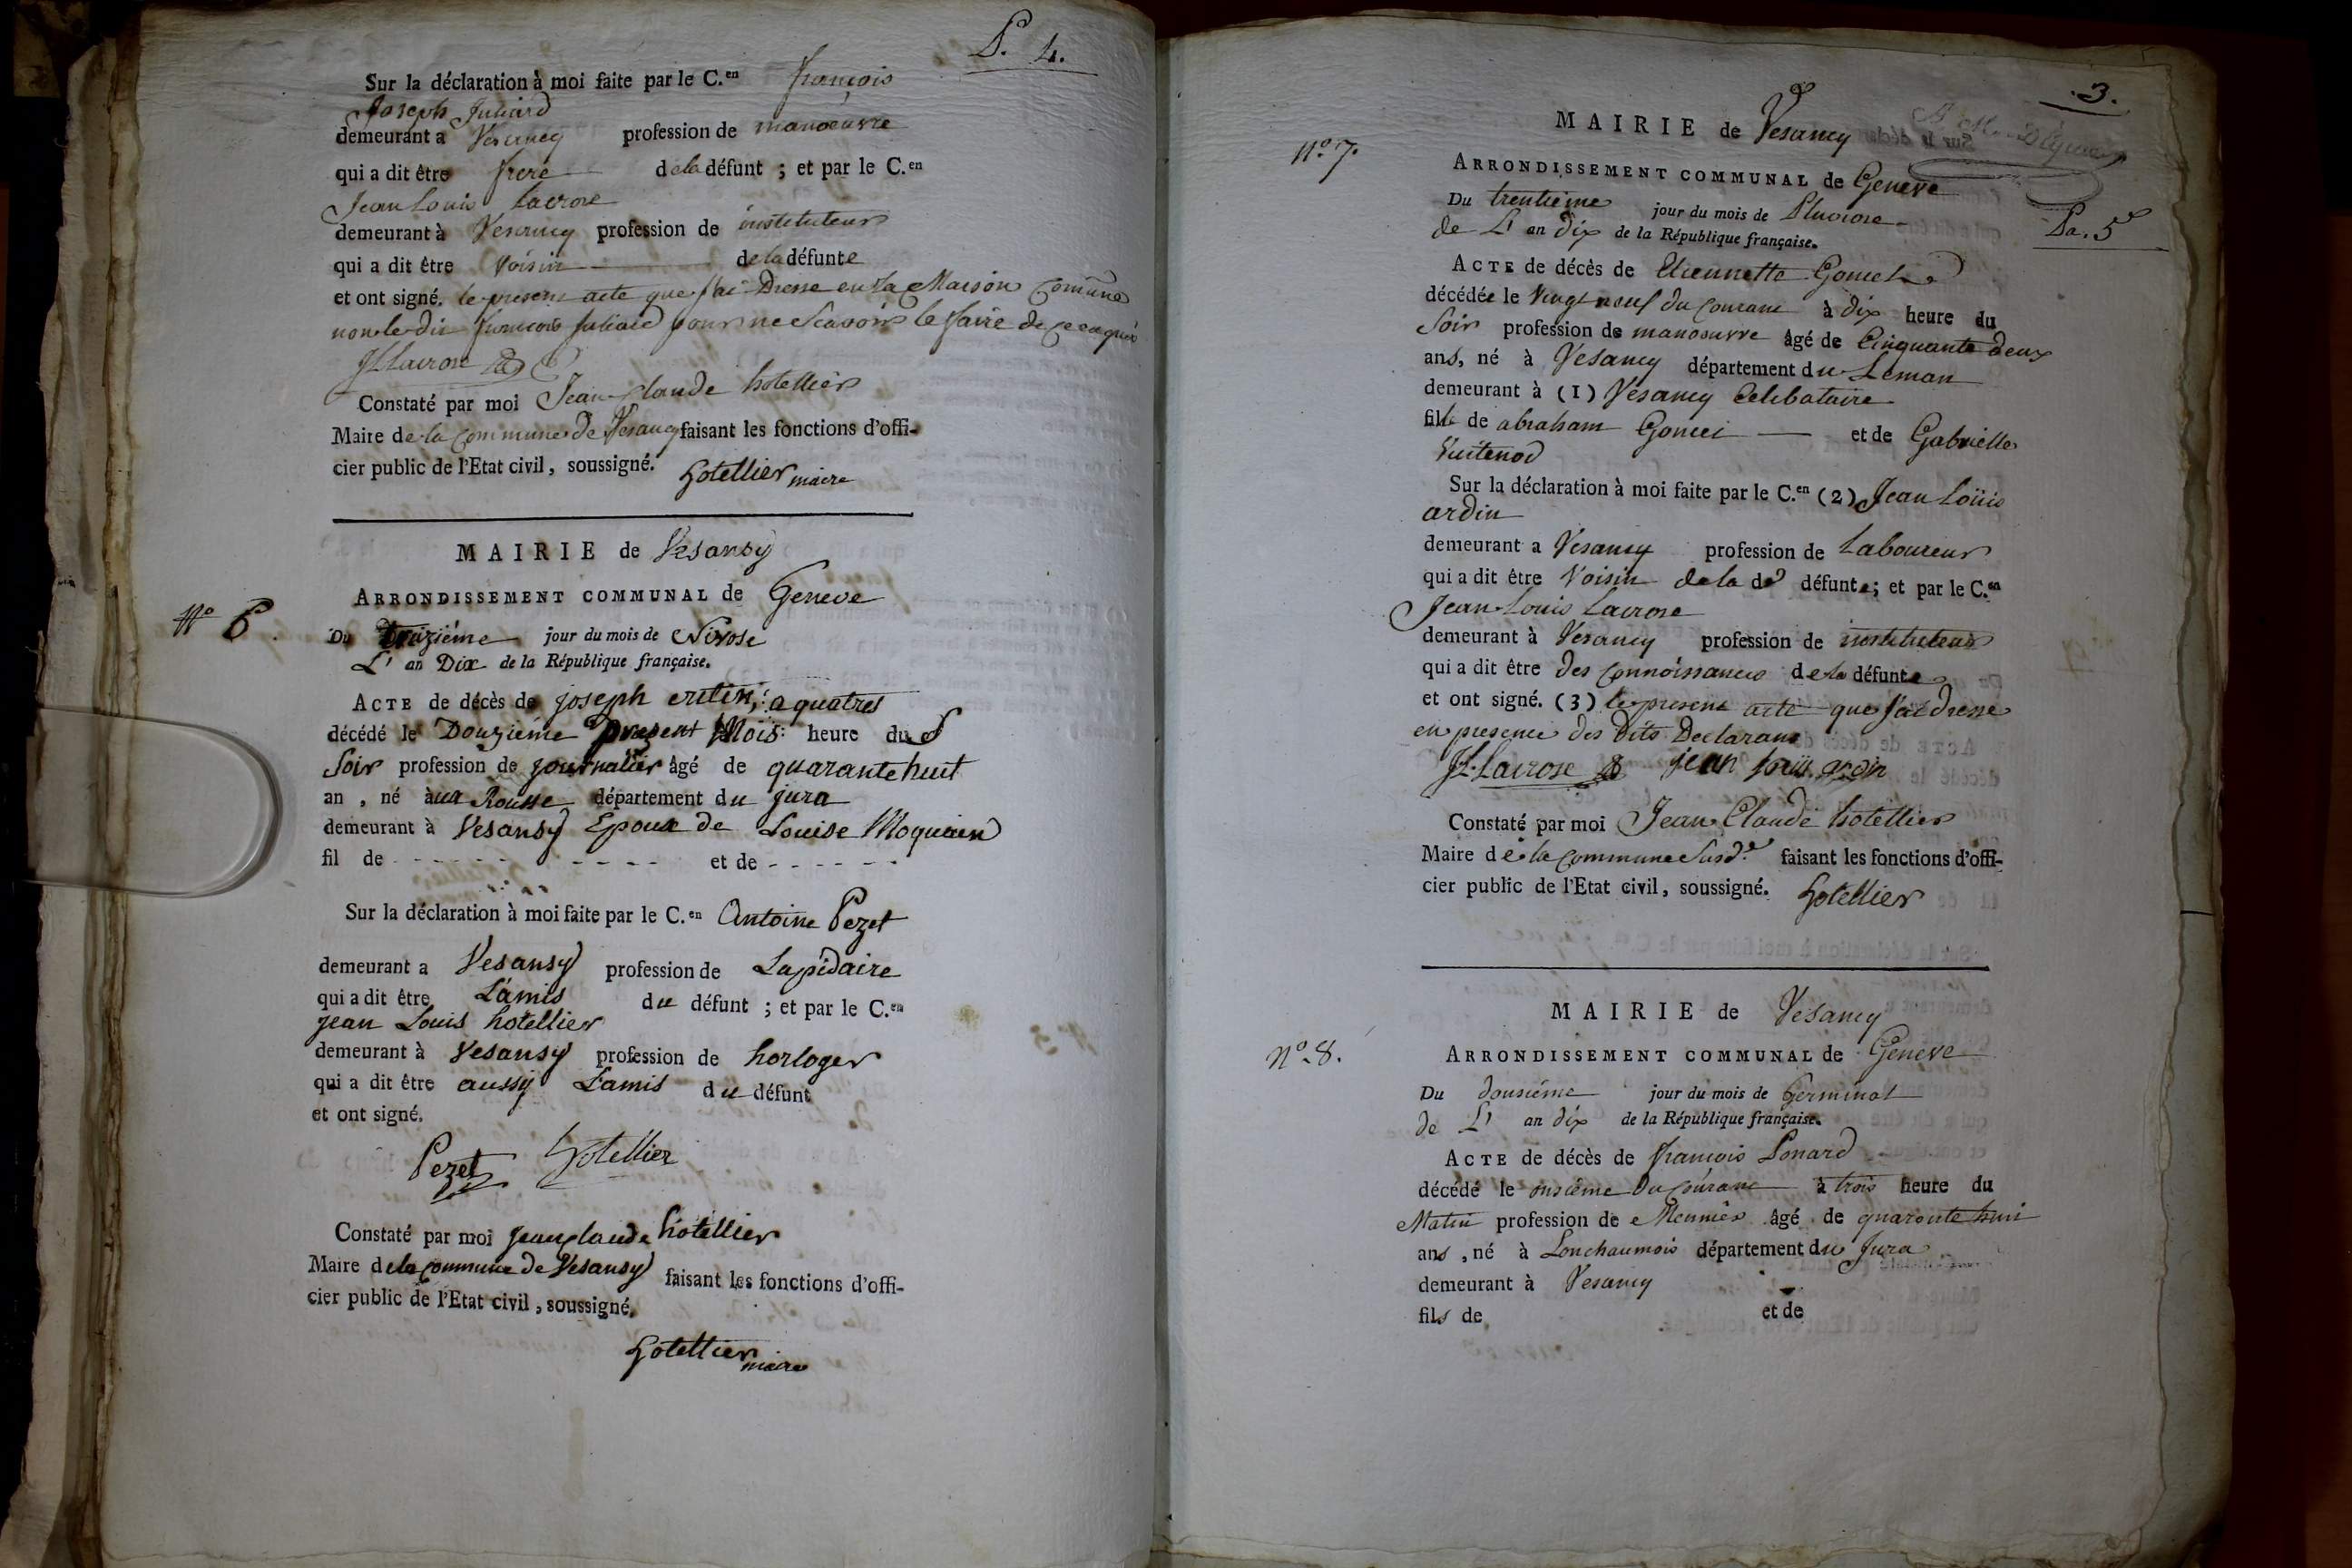 P. 4.
Sur la déclaration à moi faite par le C.en françois
Joseph Juliard
demeurant a Vesancy profession de manoeuvre
qui a dit être frere dela défunt ; et par le C.en
Jean Louis Lacrose
demeurant à Vesancy profession de instituteur
qui a dit être Voisin dela défunte
et ont signé. le present acte que j'ai Dressé en la Maison Comune
non le dit françois Juliard pour ne Scavoir le faire de ce enquis
JLLacrose
Constaté par moi Jean Claude hotellier
Maire de la Commune de Vesancy faisant les fonctions d'offi-
cier public de l'Etat civil, soussigné. hotellier maire
MAIRIE de Vesansy
ARRONDISSEMENT COMMUNAL de Geneve
N° 6.
Du jour du mois de Nivose
L' an Dix de la République française.
ACTE de décès de joseph : a quatres
décédé le Douziéme present Mois: heure du
Soir profession de journalier âgé de quarante huit
an , né aux Rousse département du jura
demeurant à Vesansy Epoux de Louise Moquain
fil de - - - - - - - - - et de - - - - - -
Sur la déclaration à moi faite par le C.en Antoine Pezet
demeurant a Vesansy profession de Lapidaire
qui a dit être L'amis du défunt ; et par le C.en
jean Louis hotellier
demeurant à Vesansy profession de horloger
qui a dit être aussy L'amis du défunt
et ont signé.
Pezet hotellier
Constaté par moi jean claude hotellier
Maire de la commune de Vesansy faisant les fonctions d'offi-
cier public de l'Etat civil, soussigné.
hotellier maire
.3.
MAIRIE de Vesancy
N.° 7.
ARRONDISSEMENT COMMUNAL de Geneve
Du trentieme jour du mois de Pluviose
de L' an dix de la République française.
Pa. 5
ACTE de décès de Etiennette Gomet
décédée le vingt neuf du courant à dix heure du
Soir profession de manoeuvre âgé de Cinquante deux
ans, né à Vesancy département du Leman
demeurant à (1) Vesancy Celibataire
fille de abraham et de Gabrielle
Sur la déclaration à moi faite par le C.en (2) Jean Loüis
ardin
demeurant a Vesancy profession de Laboureur
qui a dit être Voisin dela de défunte; et par le C.en
Jean Louis Lacrose
demeurant à Vesancy profession de instituteur
qui a dit être des Connoissances dela défunte
et ont signé. (3) le present acte que j'ai dressé
en presence des Dits Declarans
JL. Lacrose jean louis ardin
Constaté par moi Jean Claude hotellier
Maire de la Commune Susd.e faisant les fonctions d'offi-
cier public de l'Etat civil, soussigné. hotellier
MAIRIE de Vesancy
N.° 8.
ARRONDISSEMENT COMMUNAL de Geneve
Du dousiéme jour du mois de Germinal
de L' an dix de la République française.
ACTE de décès de françois Ponard
décédé le onsiéme du Courant à trois heure du
Matin profession de Meunier âgé de quarente huit
ans , né à Lonchaumois département du Jura
demeurant à Vesancy
fils de et de